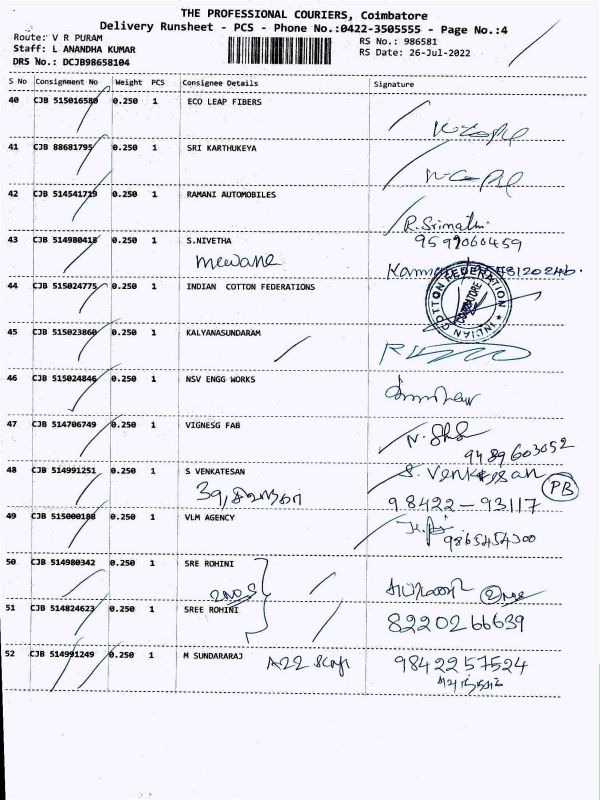 THE PROFESSIONAL COURIERS, Coimbatore
Delivery Runsheet - PCS - Phone No.:0422-3505555 - Page No.:4
Route: V R PURAM
RS No.: 986581
Staff: L ANANDHA KUMAR
RS Date: 26-Jul-2022
DRS No.: DCJB98658104
S No Consignment No Weight PCS Consignee Details Signature
40 CJB 515016580 0.250 1 ECO LEAP FIBERS
41 CJB 88681795 0.250 1 SRI KARTHUKEYA
42 CJB 514541719 0.250 1 RAMANI AUTOMOBILES
R. Srimathi
43 CJB 514980418 0.250 1 S.NIVETHA
9599060459
44 CJB 515024775 0.250 1 INDIAN COTTON FEDERATIONS
INDIAN COTTON FEDERATION
COIMBATORE
45 CJB 515023860 0.250 1 KALYANASUNDARAM
46 CJB 515024846 0.250 1 NSV ENGG WORKS
47 CJB 514706749 0.250 1 VIGNESG FAB
9489603052
48 CJB 514991251 0.250 1 S VENKATESAN
S. Venkatesan
PB
98422-93117
49 CJB 515000188 0.250 1 VLM AGENCY
9865454300
50 CJB 514980342 0.250 1 SRE ROHINI
51 CJB 514824623 0.250 1 SREE ROHINI
8220266639
52 CJB 514991249 0.250 1 M SUNDARARAJ
9842257524